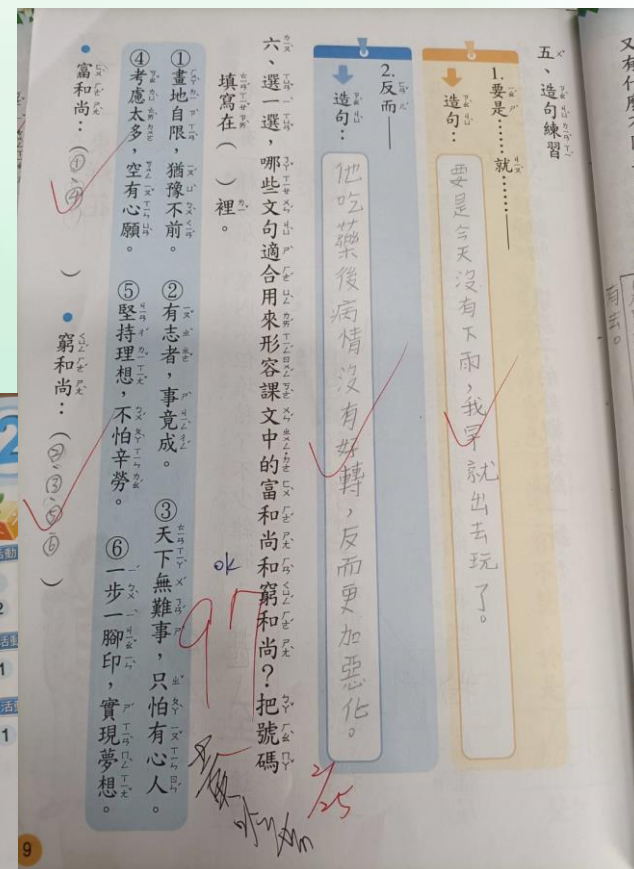 五、造句練習
1.要是……就……
造句：
要是今天沒有下雨，我早就出去玩了。
2.反而
造句：
他吃藥後病情沒有好轉，反而更加惡化。
六、選一選，哪些文句適合用來形容課文中的富和尚和窮和尚？把號碼
填寫在（　）裡。
①畫地自限，猶豫不前。
②有志者，事竟成。
③天下無難事，只怕有心人。
④考慮太多，空有心願。
⑤堅持理想，不怕辛勞。
⑥一步一腳印，實現夢想。
富和尚：（①、④）
窮和尚：（②、③、⑤、⑥）
ok
97
2/25
9